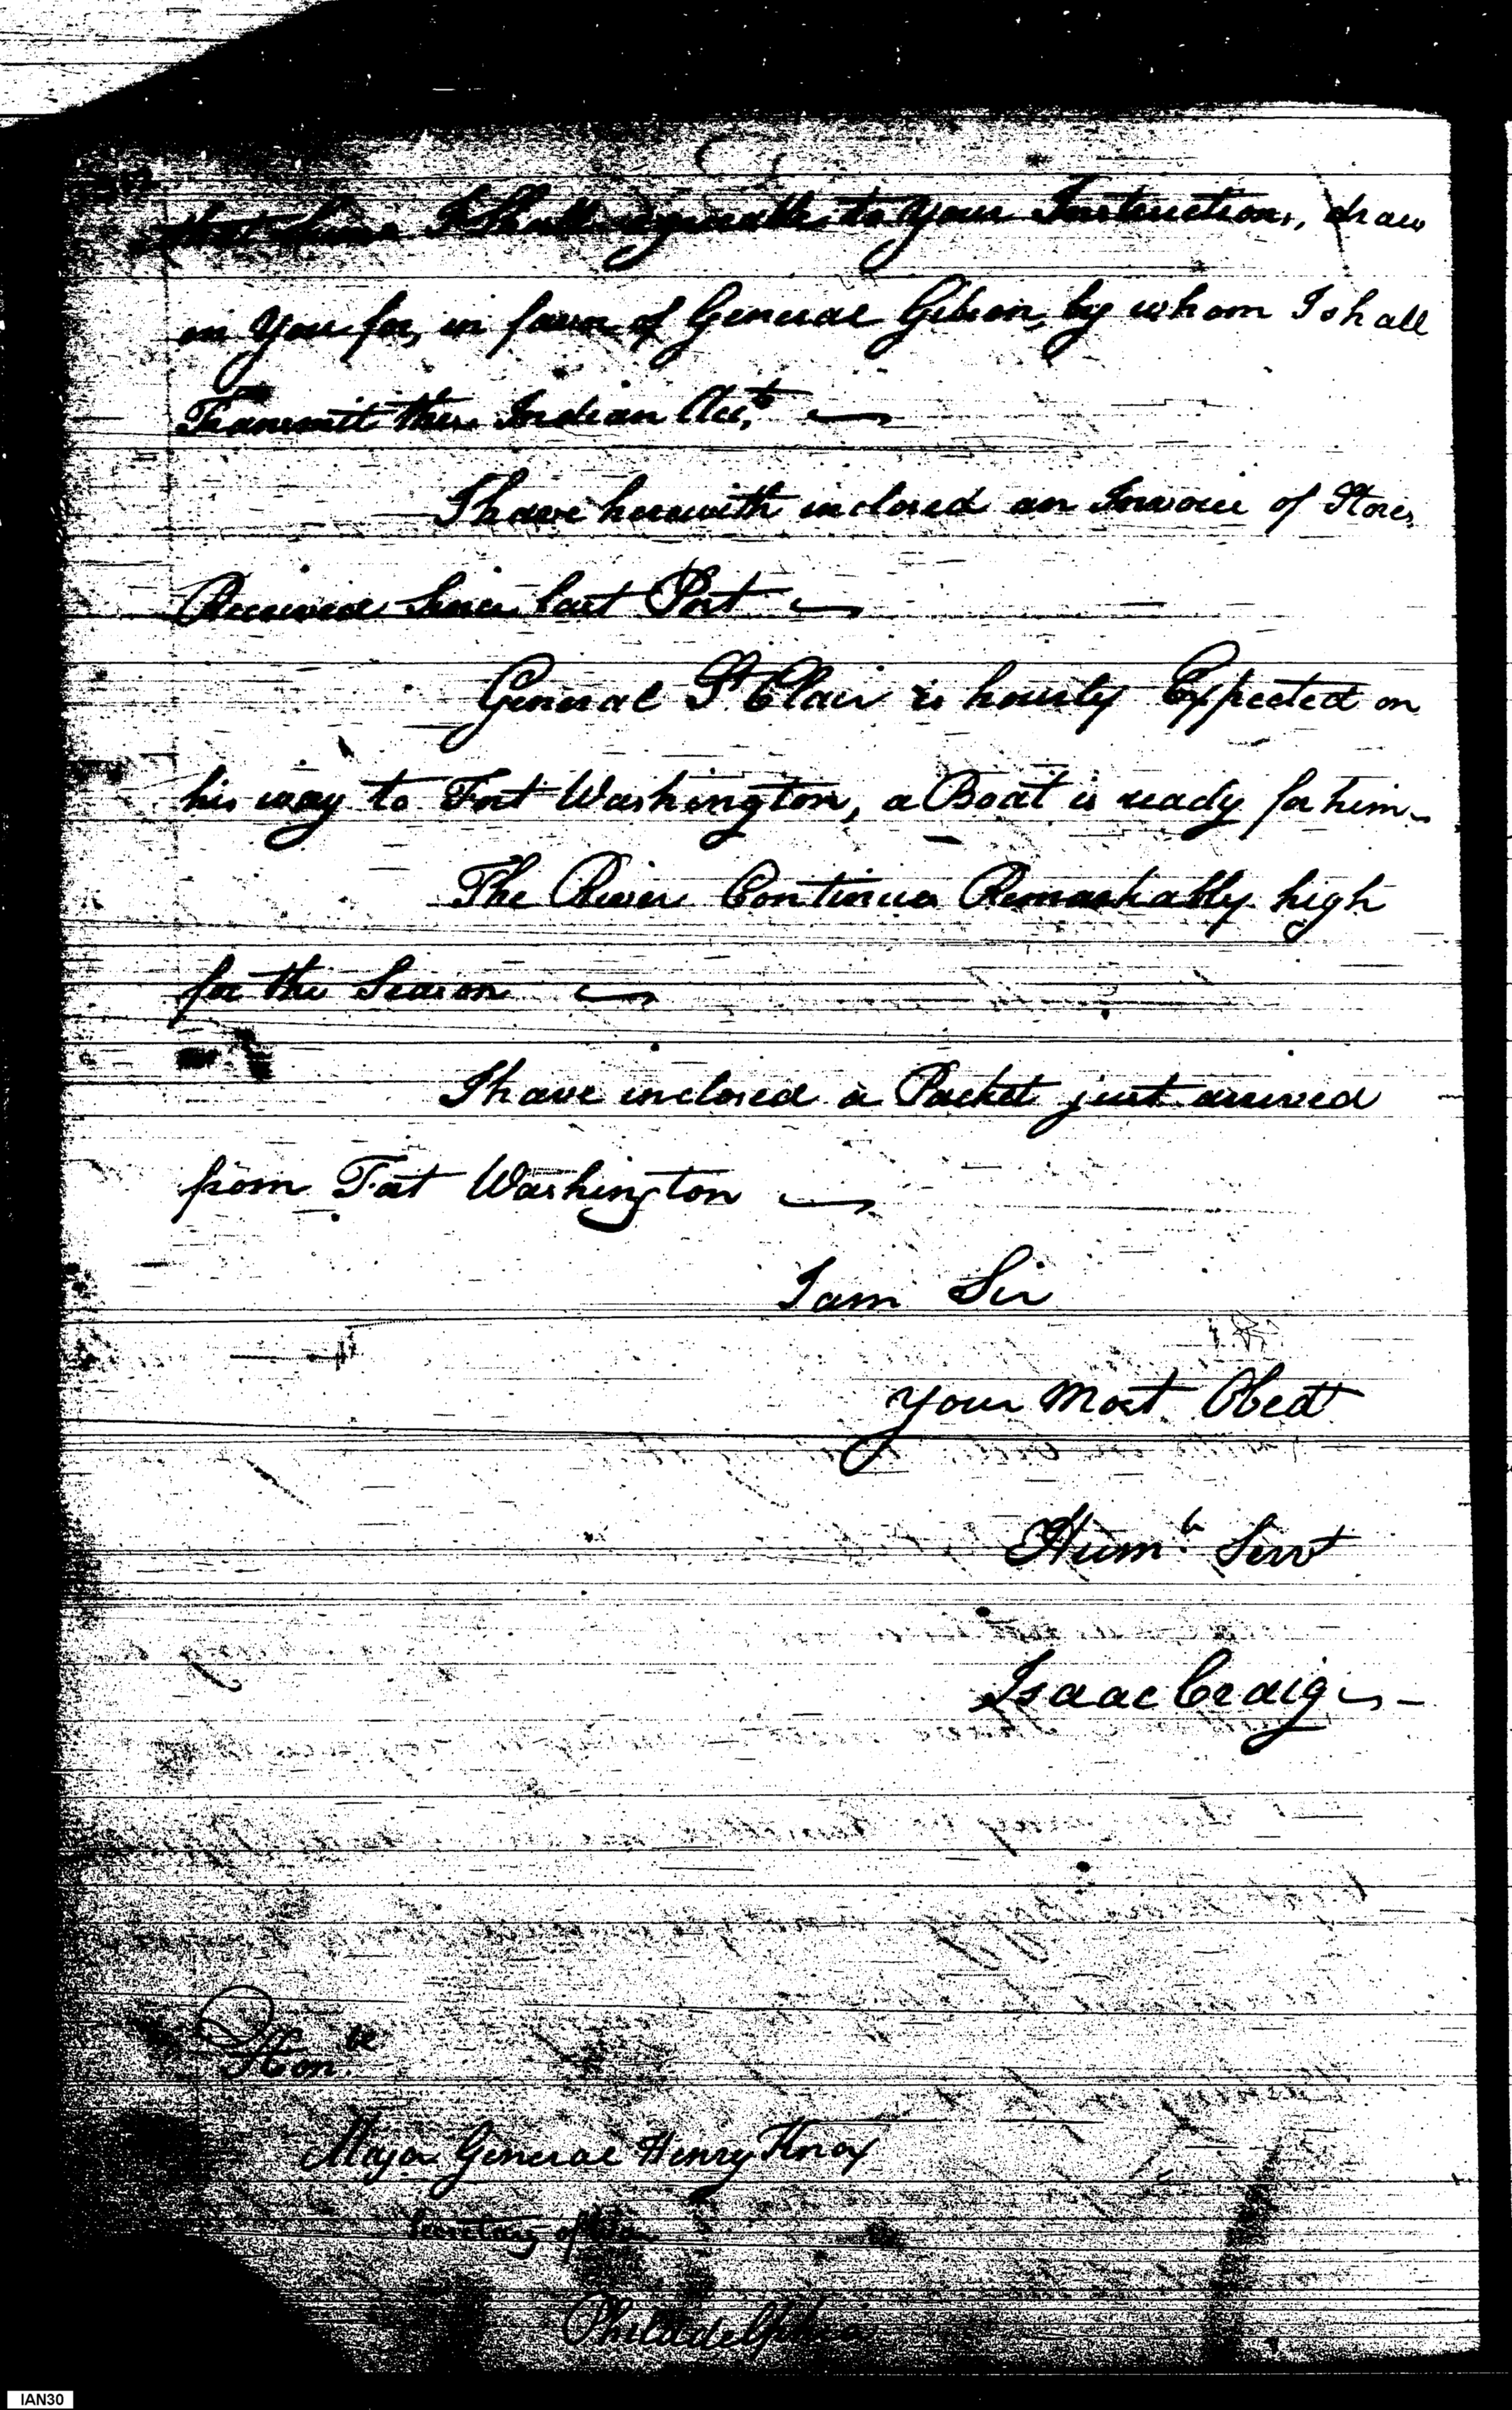 that Sum I Shall agreeable to your Instructions, draw
on You for, in favor of General Gibson, by whom I shall
Transmit these Indian Acc.ts
I have herewith inclosed an Invoice of Stores
Received Since last Post
General St Clair is hourly Expected on
his way to Fort Washington, a Boat is ready for him
The River Continues Remarkably high
for the Season
I have inclosed a Packet just arrived
from Fort Washington
I am Sir
your most Obedt
Hum.b Servt
Isaac Craig
Hon.ble
Major General Henry Knox
Secretary of War
Philadelphia
IAN30